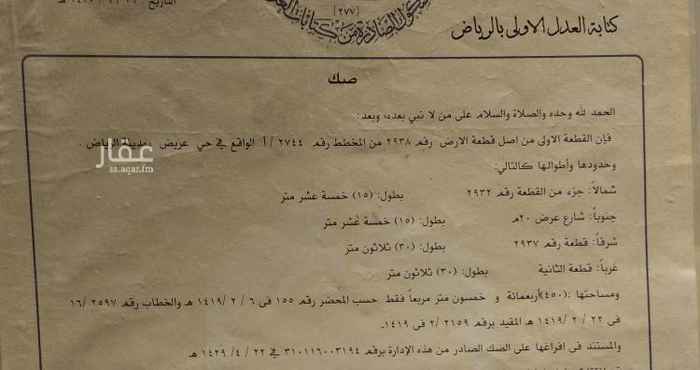 كتابة العدل الاولى بالرياض
التاريخ
(٢٧٧)
صك
الحمد لله وحده والصلاة والسلام على من لا نبي بعده، وبعد:
فإن القطعة الاولى من اصل قطعة الارض رقم ٢٩٣٨ من المخطط رقم ٢٧٤٤ / أ الواقع في حي عريض بمدينة الرياض .
وحدودها وأطوالها كالتالي:
شمالاً: جزء من القطعة رقم ٢٩٣٢ بطول: (١٥) خمسة عشر متر
جنوباً: شارع عرض ٢٠م بطول: (١٥) خمسة عشر متر
شرقاً: قطعة رقم ٢٩٣٧ بطول: (٣٠) ثلاثون متر
غرباً: قطعة الثانية بطول: (٣٠) ثلاثون متر
ومساحتها :(٤٥٠) أربعمائة و خمسون متر مربعاً فقط حسب المحضر رقم ١٥٥ فى ٦ / ٢ / ١٤١٩ هـ والخطاب رقم ٢٥٩٧/ ١٦
فى ٢٢ / ٢ / ١٤١٩ هـ المقيد برقم ٢١٥٩ /٢ فى ١٤١٩.
والمستند فى افراغها على الصك الصادر من هذه الإدارة برقم ٣١٠١١٦٠٠٣١٩٤ في ٢٢ / ٤ / ١٤٢٩ هـ
عقار
sa.aqar.fm